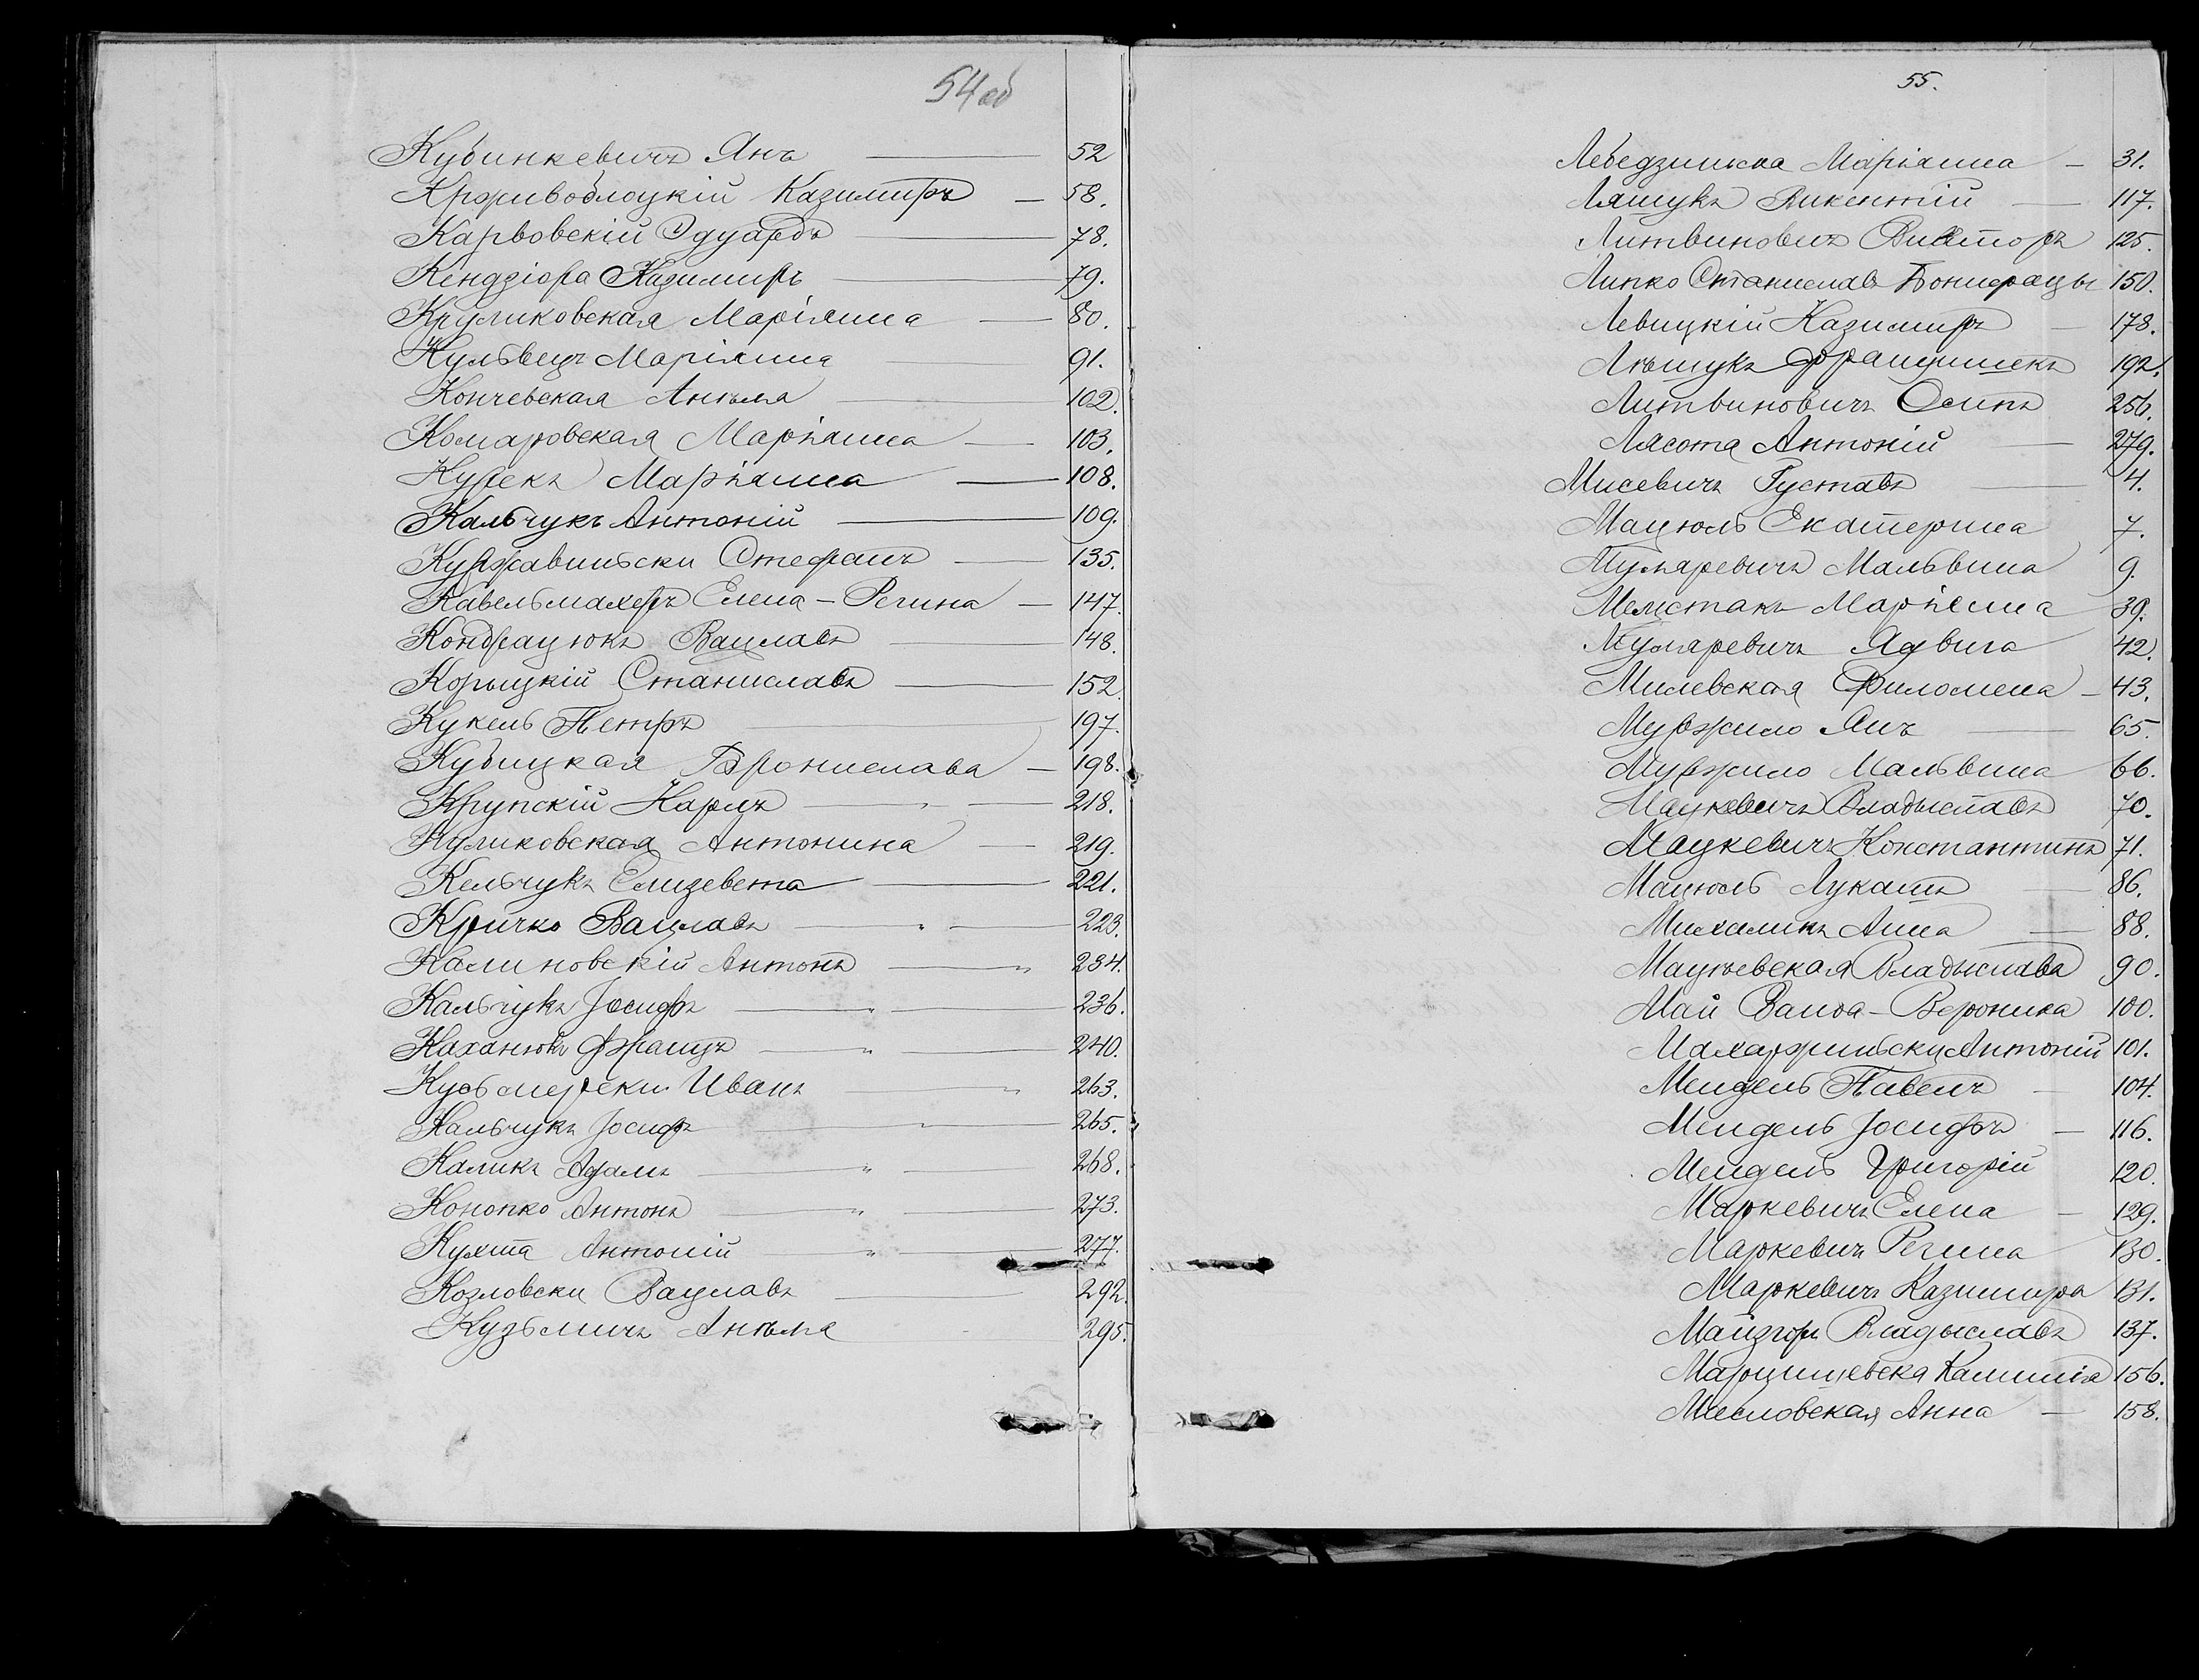 54 об
Кубинкевичъ Янъ 52
Крживоблоцкій Казимиръ 58.
Карвовскій Эдуардъ 78.
Кендзіора Казимиръ 79.
Круликовская Маріянна 80.
Кульвецъ Маріянна 91.
Кончевская Анѣля 102.
Комаровская Маріянна 103.
Кулекъ Маріянна 108.
Кальчукъ Антоній 109.
Куржавиньски Стефанъ 135.
Кавельмахеръ Елена-Регина 147.
Кондрацюкъ Вацлавъ 148.
Корыцкій Станиславъ 152.
Кукель Петръ 197.
Кубицкая Брониелава 198.
Крупскій Карлъ 218.
Куликовская Антонина 219.
Кельчукъ Елизевета 221.
Кричко Вацлавъ 223.
Калиновскій Антонъ 234.
Кальчукъ Іосифъ 236.
Каханюкъ Францъ 240.
Иванъ 263.
Кальчукъ Іосифъ 265.
Каликъ Адамъ 268.
Конопко Антонъ 273.
Кухта Антоній 277.
Козловски Вацлавъ 292.
Кузьмичъ Анѣля 295.
55.
Лебедзинска Маріянна 31.
Ляшукъ Викентій 117.
Литвиновичъ Викторъ 125.
Липко Станиславъ Бонифацы 150.
Левицкій Казимиръ 178.
Лѣшукъ Францишекъ 192.
Литвиновичъ Осипъ 256.
Лясота Антоній 279.
Мисевичъ Густавъ 4.
Мацюль Екатерина 7.
Муляревичъ Мальвина 9.
Маріянна 39.
Муляревичъ Ядвига 42.
Милевская Филомена 43.
Муржило Янъ 65.
Муржило Мальвина 66.
Мацкевичъ Владыславъ 70.
Мацкевичъ Константинъ 71.
Мацюль Лукашъ 86.
Михаликъ Анна 88.
Мацѣевская Владыслава 90.
Май Ванда-Вероника 100.
Махаржиньски Антоній 101.
Мендель Павелъ 104.
Мендель Іосифъ 116.
Мендель Григорій 120.
Маркевичъ Елена 129.
Маркевичъ Регина 130.
Маркевичъ Казимира 131.
Майзгоръ Владыславъ 137.
Марцишевска Камилія 156.
Масловская Анна 158.